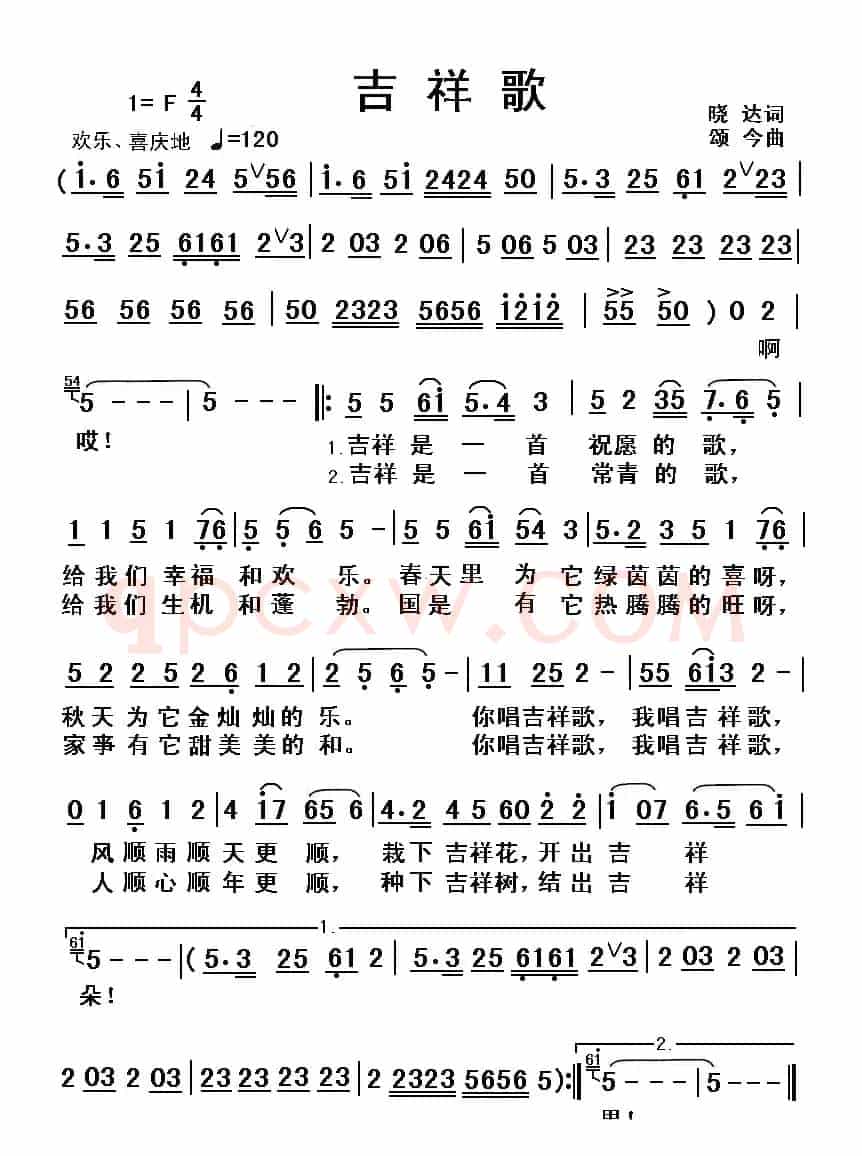 吉祥歌
1= F 4/4
晓 达词
欢乐、喜庆地 ♩=120
颂 今曲
( i·6 5i 24 5∨56 | i·6 5i 2424 50 | 5·3 25 61 2∨23 |
5·3 25 6161 2∨3 | 2 03 2 06 | 5 06 5 03 | 23 23 23 23 |
56 56 56 56 | 50 2323 5656 i2i2 | 55 50 ) 0 2 |
啊
54 5 - - - | 5 - - - ‖: 5 5 6i 5·4 3 | 5 2 35 7·6 5 |
哎! 1.吉祥是一首祝愿的歌,
2.吉祥是一首常青的歌,
1 1 5 1 76 | 5 5 6 5 - | 5 5 6i 54 3 | 5·2 3 5 1 76 |
给我们幸福和欢乐。春天里为它绿茵茵的喜呀,
给我们生机和蓬勃。国是有它热腾腾的旺呀,
qpcxw.COM
5 2 2 5 2 6 1 2 | 2 5 6 5 - | 11 25 2 - | 55 6i3 2 - |
秋天为它金灿灿的乐。你唱吉祥歌,我唱吉祥歌,
家事有它甜美美的和。你唱吉祥歌,我唱吉祥歌,
0 1 6 1 2 | 4 i7 65 6 | 4·2 4 5 60 2 2 | i 07 6·5 6 i |
风顺雨顺天更顺,栽下吉祥花,开出吉祥
人顺心顺年更顺,种下吉祥树,结出吉祥
1.
6i 5 - - - | ( 5·3 25 61 2 | 5·3 25 6161 2∨3 | 2 03 2 03 |
朵!
2.
2 03 2 03 | 23 23 23 23 | 2 2323 5656 5 ) :‖ 6i 5 - - - | 5 - - - ‖